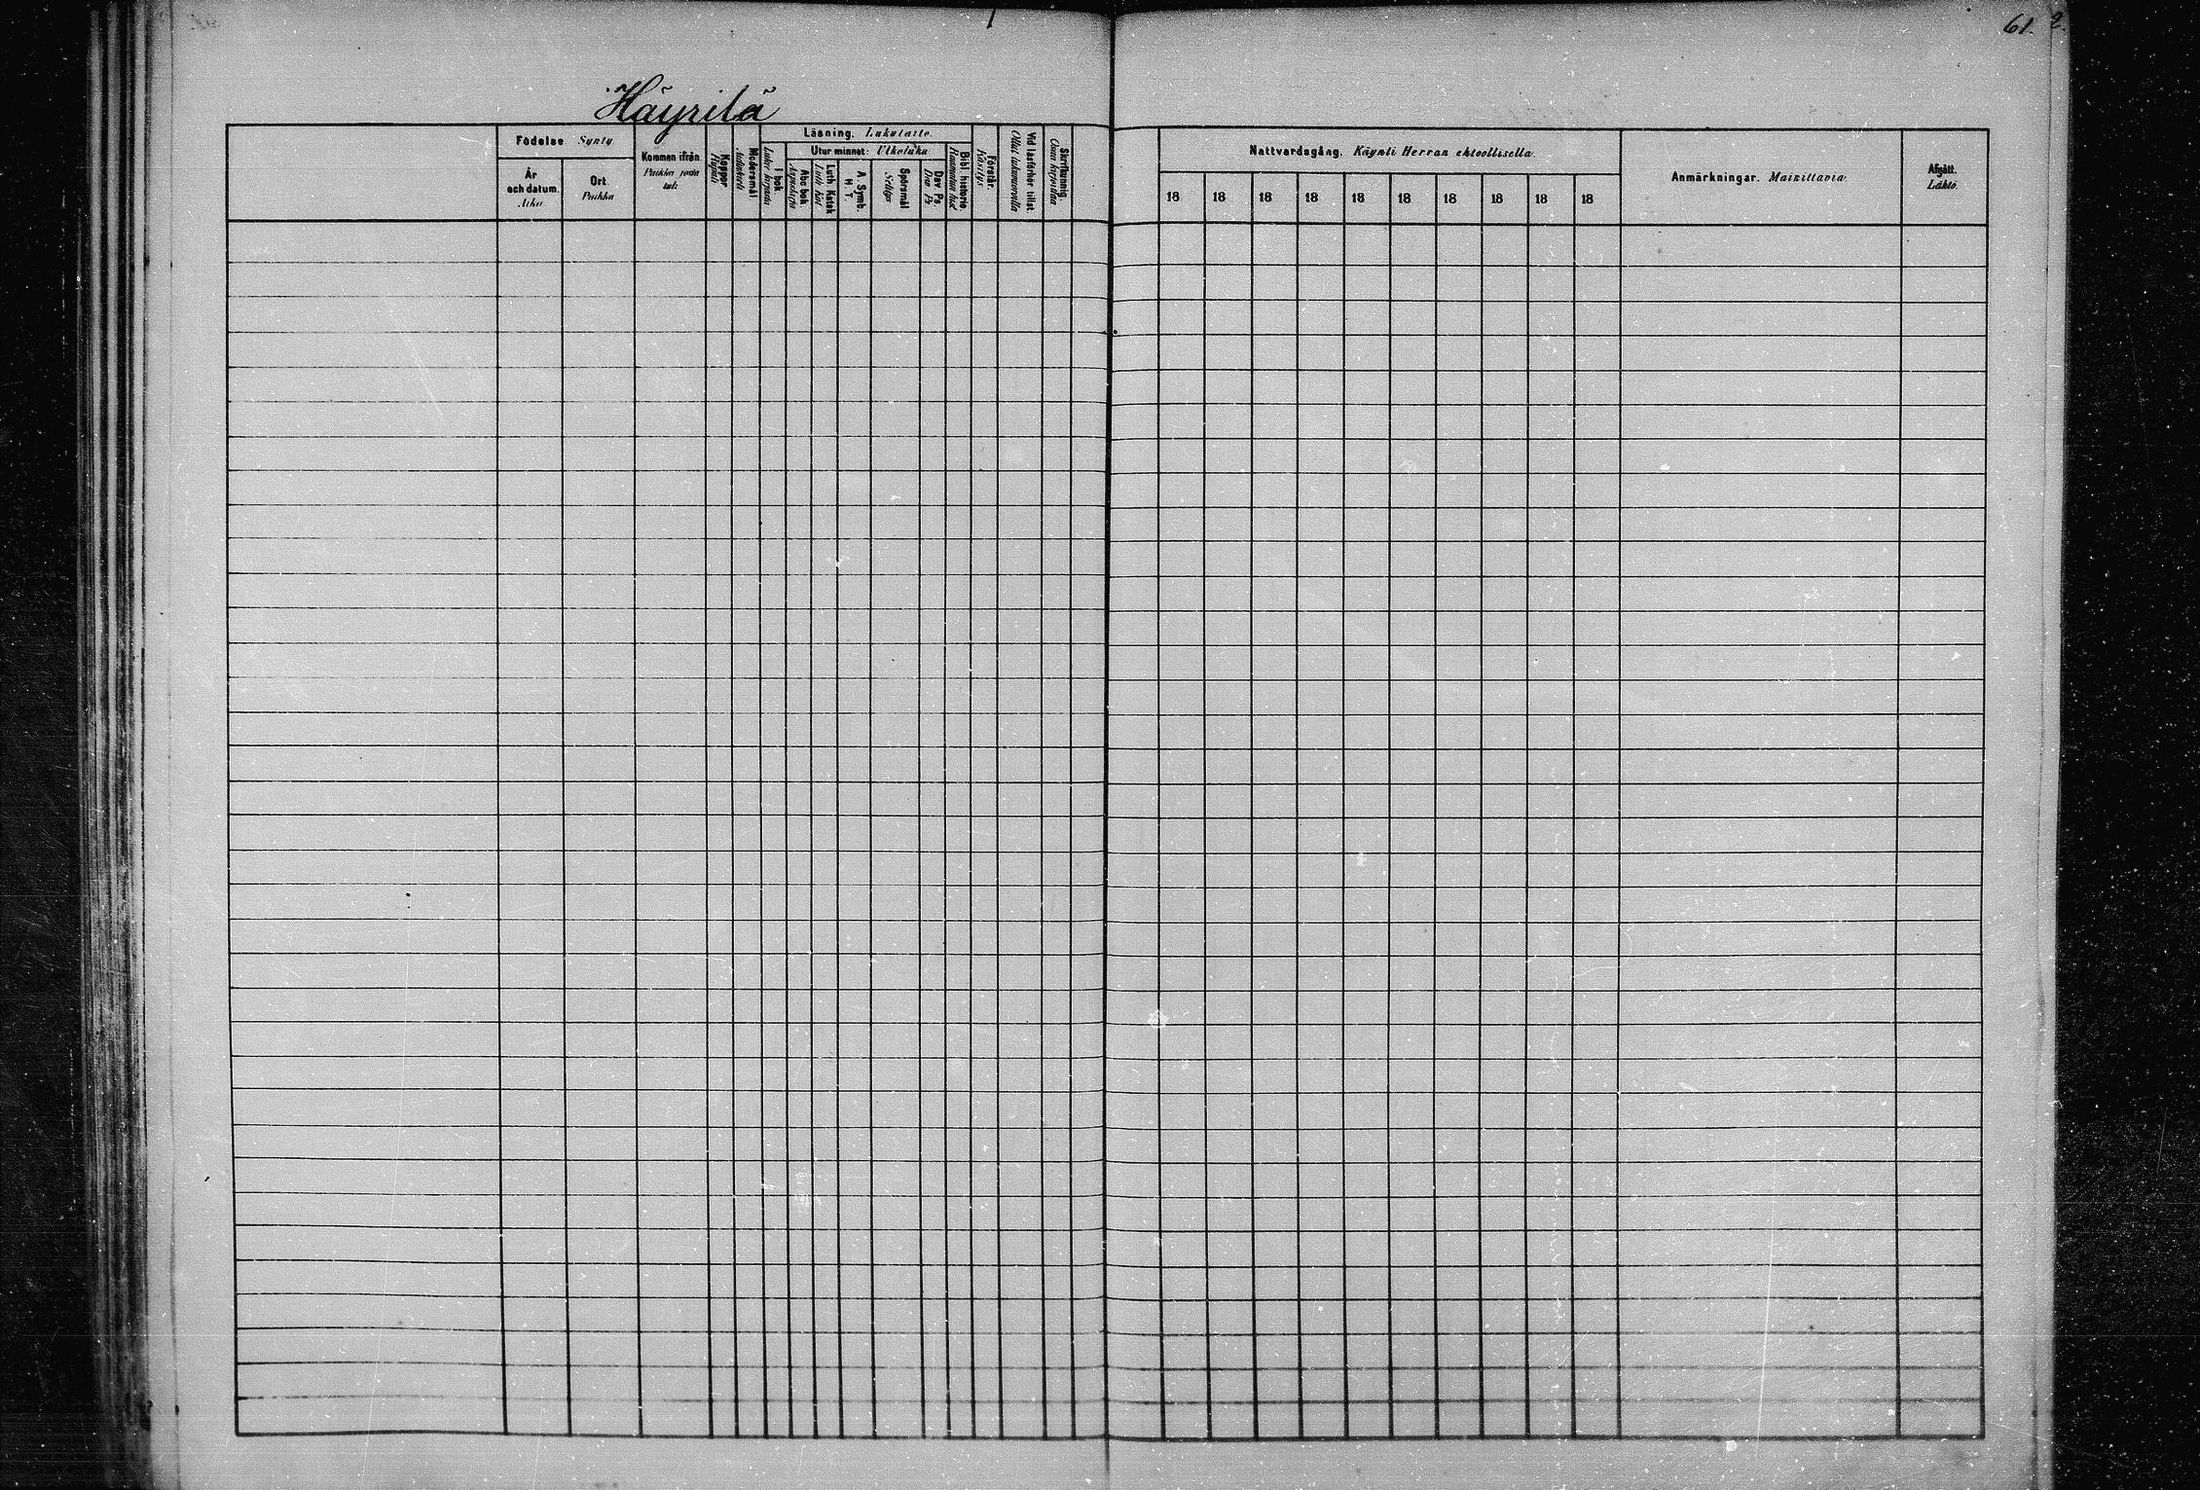 61.
Häyrilä
Födelse Synty
År och datum. Aika
Ort Paikka
Kommen ifrån Paikka josta tuli
Koppor Rupuli
Modersmål Äidinkieli
Läsning. Lukutaito.
I bok Luku kirjasta
Utur minnet: Ulkoluku
Abc bok.
Luth. Katek. Luth. Kat.
A. Symb. H. T.
Spörsmål Selitys
Dav. Ps. Dav. Ps.
Bibl. historie. Raamatun hist.
Förstår. Käsitys
Vid läsförhör tillst. Ollut lukuvuorolla
Skrifkunnig. Osaa kirjoittaa
Nattvardsgång. Käynti Herran ehtoollisella.
18 18 18 18 18 18 18 18 18 18
Anmärkningar. Mainittavia.
Afgått. Lähtö.